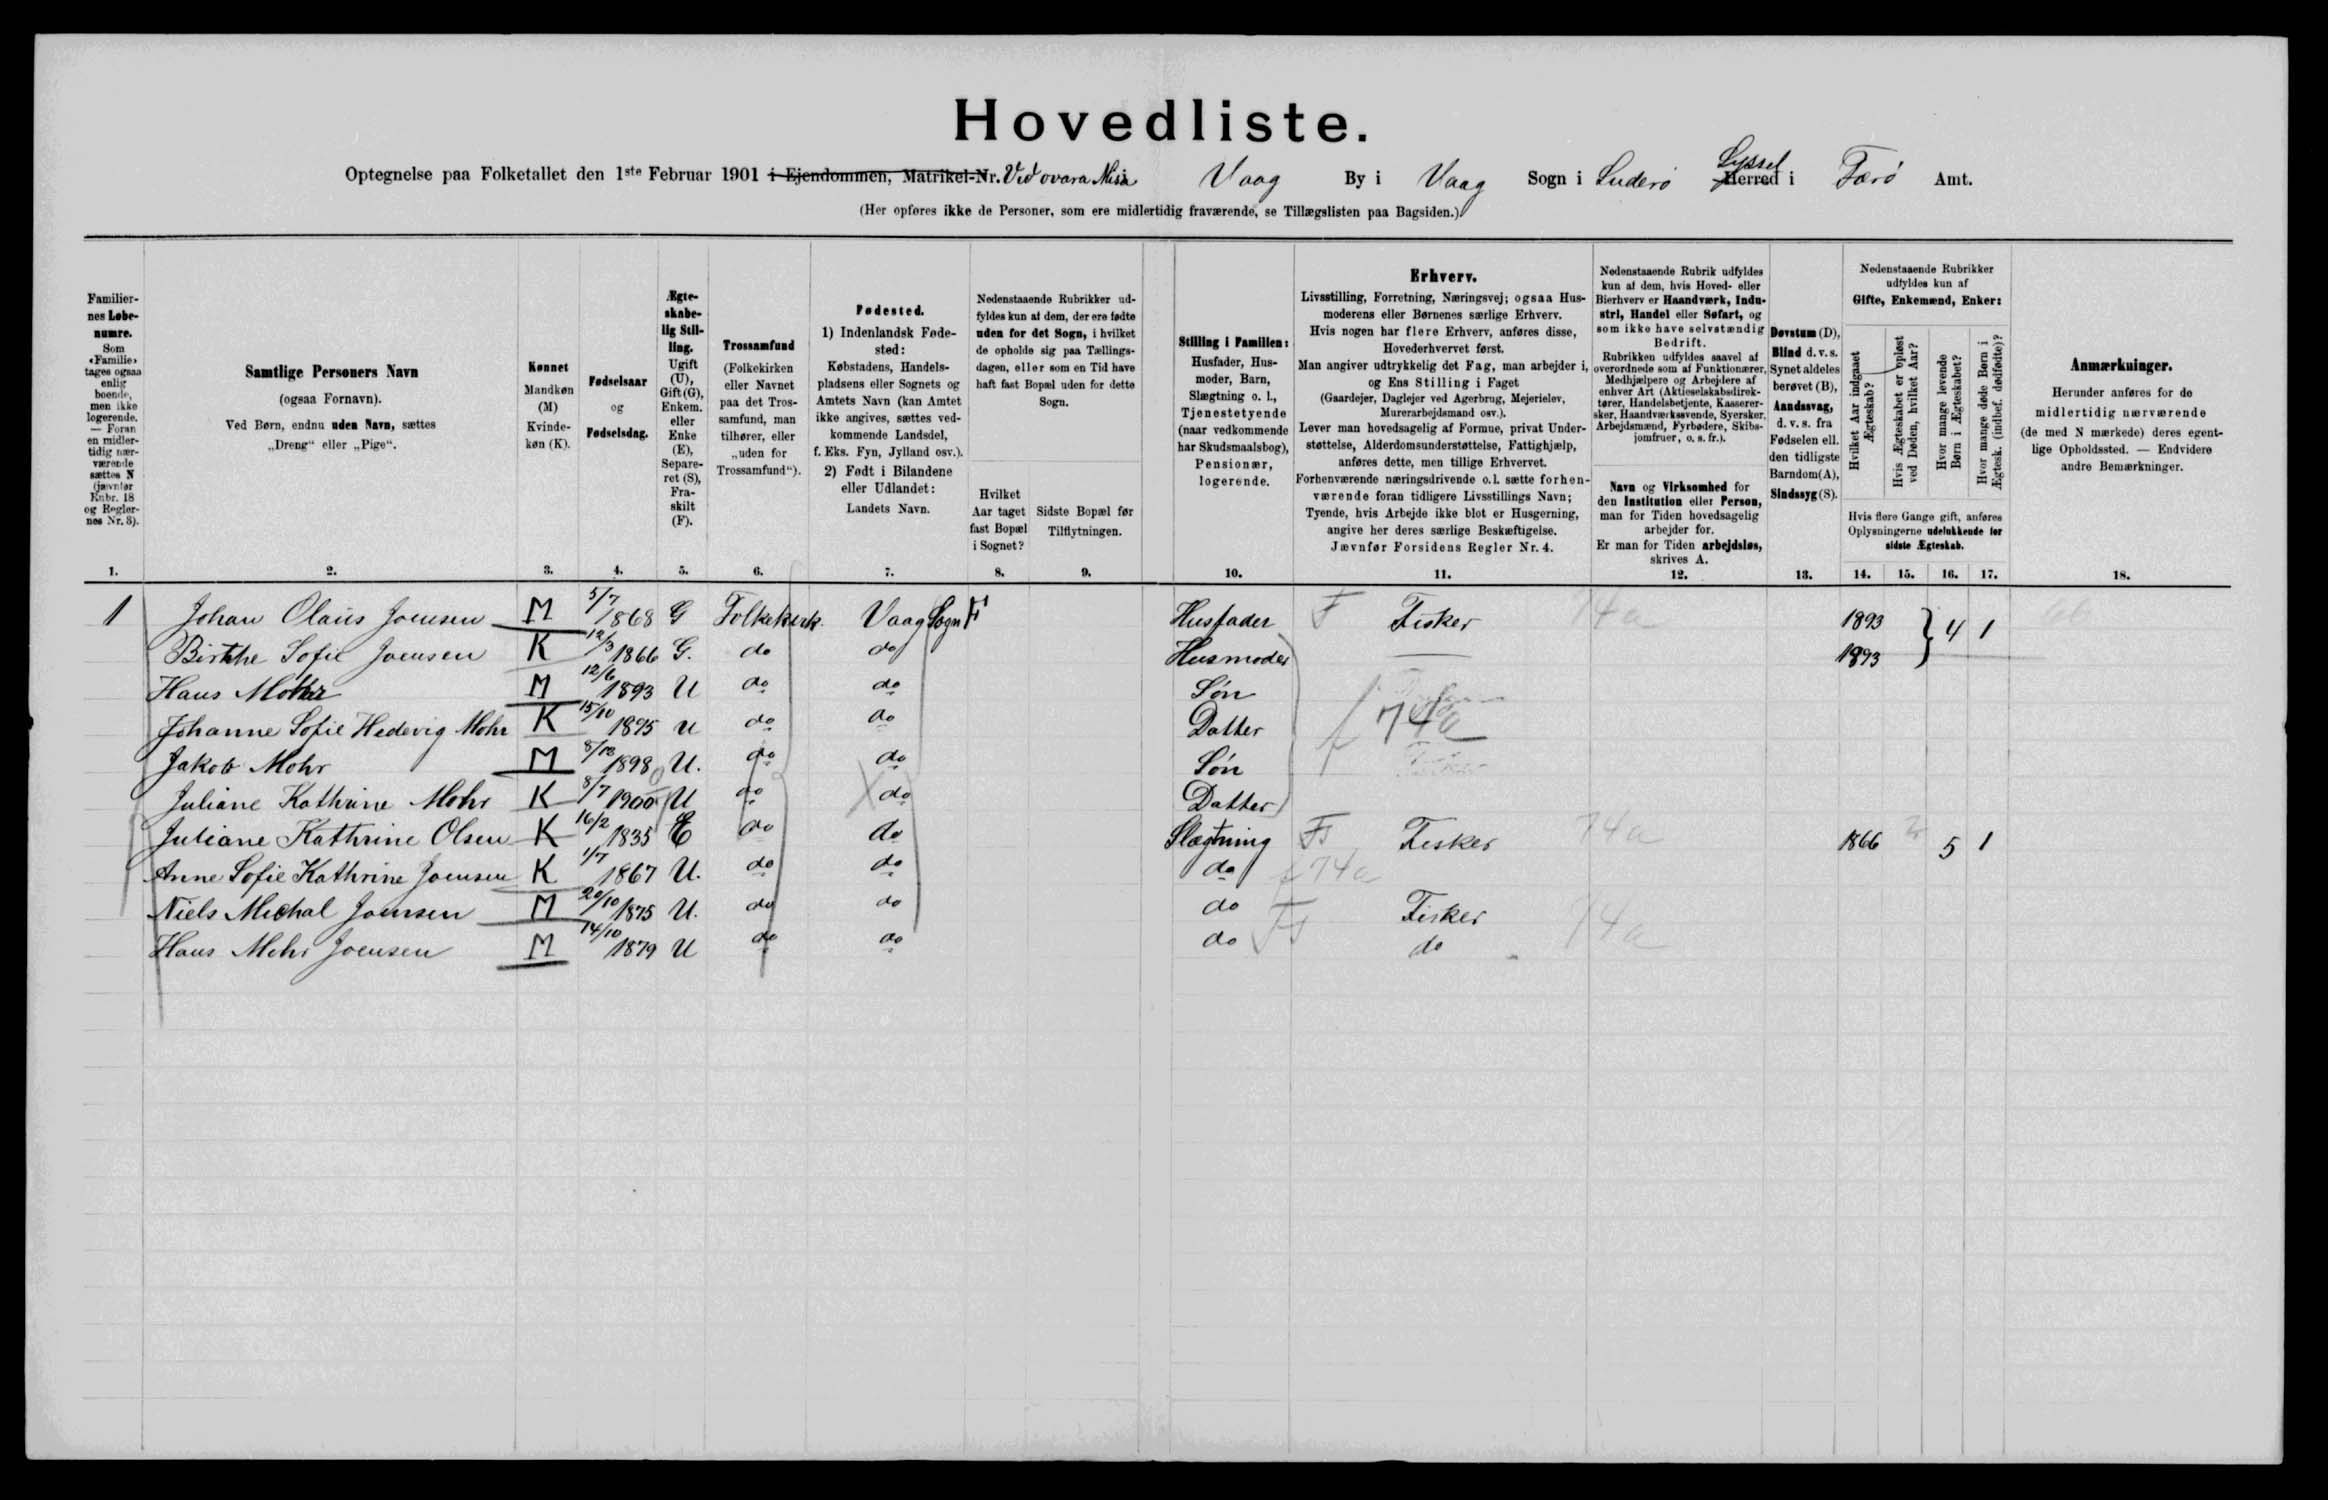 Hovedliste.
Optegnelse paa Folketallet den 1ste Februar 1901 i Ejendommen, Matrikel-Nr. Við ovara Misá Vaag By i Vaag Sogn i Suderø Syssel Herred i Færø Amt.
(Her opføres ikke de Personer, som ere midlertidig fraværende, se Tillægslisten paa Bagsiden.)
Familiernes Løbenumre.
Som «Familie» tages ogsaa enlig boende, men ikke logerende. — Foran en midlertidig nærværende sættes N (jævnfør Rubr. 18 og Reglernes Nr. 3).
Samtlige Personers Navn
(ogsaa Fornavn).
Ved Børn, endnu uden Navn, sættes
„Dreng“ eller „Pige“.
Kønnet
Mandkøn (M)
Kvindekøn (K).
Fødselsaar
og
Fødselsdag.
Ægteskabelig Stilling.
Ugift (U), Gift (G), Enkem. eller Enke (E), Separeret (S), Fraskilt (F).
Trossamfund
(Folkekirken eller Navnet paa det Trossamfund, man tilhører, eller „uden for Trossamfund“).
Fødested.
1) Indenlandsk Fødested:
Købstadens, Handelspladsens eller Sognets og Amtets Navn (kan Amtet ikke angives, sættes vedkommende Landsdel, f. Eks. Fyn, Jylland osv.).
2) Født i Bilandene eller Udlandet:
Landets Navn.
Nedenstaaende Rubrikker udfyldes kun af dem, der ere fødte uden for det Sogn, i hvilket de opholde sig paa Tællingsdagen, eller som en Tid have haft fast Bopæl uden for dette Sogn.
Hvilket Aar taget fast Bopæl i Sognet?
Sidste Bopæl før Tilflytningen.
Stilling i Familien:
Husfader, Husmoder, Barn, Slægtning o. l., Tjenestetyende (naar vedkommende har Skudsmaalsbog), Pensionær, logerende.
Erhverv.
Livsstilling, Forretning, Næringsvej; ogsaa Husmoderens eller Børnenes særlige Erhverv.
Hvis nogen har flere Erhverv, anføres disse, Hovederhvervet først.
Man angiver udtrykkelig det Fag, man arbejder i, og Ens Stilling i Faget
(Gaardejer, Daglejer ved Agerbrug, Mejerielev, Murerarbejdsmand osv.).
Lever man hovedsagelig af Formue, privat Understøttelse, Alderdomsunderstøttelse, Fattighjælp, anføres dette, men tillige Erhvervet.
Forhenværende næringsdrivende o. l. sætte forhenværende foran tidligere Livsstillings Navn;
Tyende, hvis Arbejde ikke blot er Husgerning, angive her deres særlige Beskæftigelse.
Jævnfør Forsidens Regler Nr. 4.
Nedenstaaende Rubrik udfyldes kun af dem, hvis Hoved- eller Bierhverv er Haandværk, Industri, Handel eller Søfart, og som ikke have selvstændig Bedrift.
Rubrikken udfyldes saavel af overordnede som af Funktionærer, Medhjælpere og Arbejdere af enhver Art (Aktieselskabsdirektører, Handelsbetjente, Kasserersker, Haandværkssvende, Syersker, Arbejdsmænd, Fyrbødere, Skibsjomfruer, o. s. fr.).
Navn og Virksomhed for den Institution eller Person, man for Tiden hovedsagelig arbejder for.
Er man for Tiden arbejdsløs, skrives A.
Døvstum (D), Blind d. v. s. Synet aldeles berøvet (B), Aandssvag, d. v. s. fra Fødselen ell. den tidligste Barndom (A), Sindssyg (S).
Nedenstaaende Rubrikker udfyldes kun af
Gifte, Enkemænd, Enker:
Hvilket Aar indgaaet Ægteskab?
Hvis Ægteskabet er opløst ved Døden, hvilket Aar?
Hvor mange levende Børn i Ægteskabet?
Hvor mange døde Børn i Ægtesk. (indbef. dødfødte)?
Hvis flere Gange gift, anføres Oplysningerne udelukkende for sidste Ægteskab.
Anmærkninger.
Herunder anføres for de midlertidig nærværende (de med N mærkede) deres egentlige Opholdssted. — Endvidere andre Bemærkninger.
1. 2. 3. 4. 5. 6. 7. 8. 9. 10. 11. 12. 13. 14. 15. 16. 17. 18.
1 Johan Olaus Joensen M 5/7 1868 G Folkekirk. Vaag Sogn F Husfader F Fisker 74a 1893 4 1
Birthe Sofie Joensen K 12/3 1866 G. do do Husmoder 1893
Hans Mohr M 12/6 1893 U do do Søn
Johanne Sofie Hedevig Mohr K 15/10 1895 U do do Datter f 74a
Jakob Mohr M 1898 U. do do Søn
Juliane Kathrine Mohr K 8/7 1900 U do do Datter
Juliane Kathrine Olsen K 16/2 1835 E do do Slægtning Fisker 74a 1866 5 1
Anne Sofie Kathrine Joensen K 1/7 1867 U. do do do f 74a
Niels Michal Joensen M 20/10 1875 U. do do do Fisker 74a
Hans Mohr Joensen M 14/10 1879 U do do do do